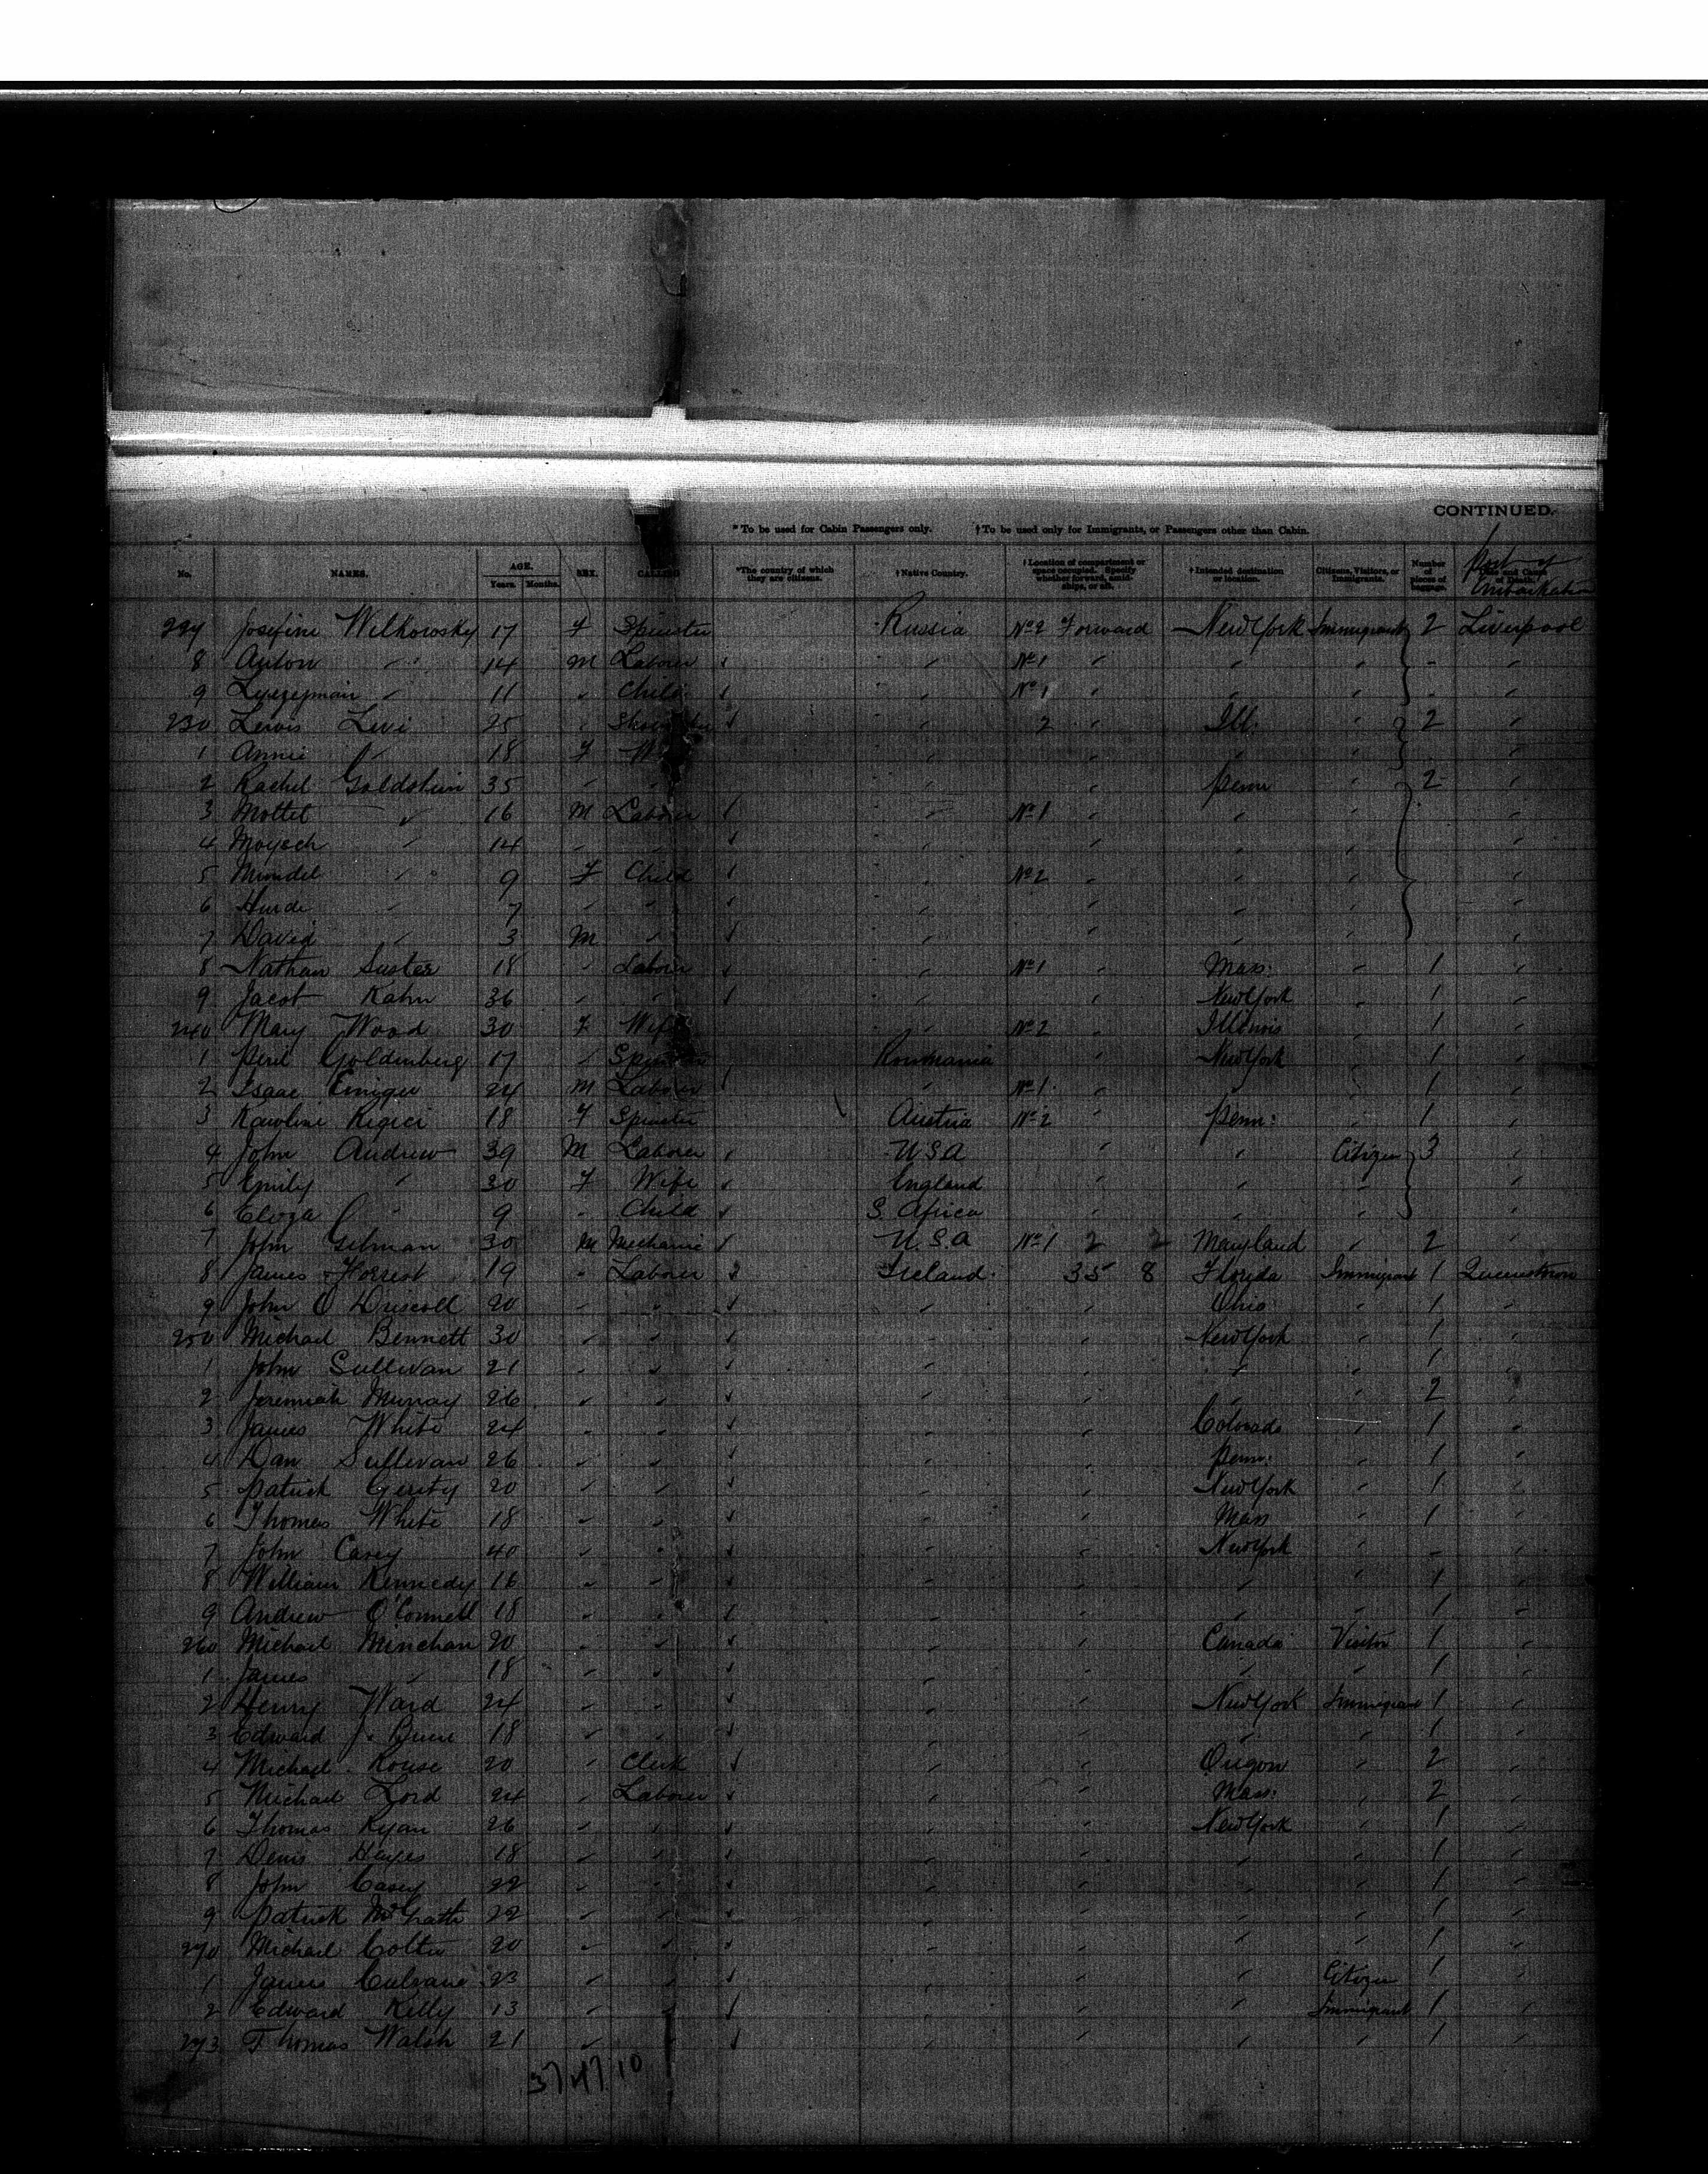 CONTINUED.
*To be used for Cabin Passengers only. †To be used only for Immigrants, or Passengers other than Cabin.
No. NAMES. AGE. Years. Months. SEX. CALLING *The country of which they are citizens. †Native Country. †Location of compartment or space occupied. Specify whether forward, amidships, or aft. †Intended destination or location. Citizens, Visitors, or Immigrants. Number of pieces of baggage. Port of Embarkation
Josefine Wilkorosky 17 F Spinster Russia No 2 Forward New York Immigrant 2 Liverpool
8 Anton " 14 M Labourer " No 1 " " " - "
9 " 11 " Child " No 1 " " " - "
230 Lewis Levi 25 " " 2 " Ill. " 2 "
1 Annie " 18 F " " " " "
2 Rachel Goldstein 35 " " " " Penn " 2 "
3 Mottel " 16 M Labourer " No 1 " " " "
4 Moysch " 14 " " " " " " "
5 Mindel " 9 F Child " No 2 " " " "
6 " 7 " " " " " " "
7 David " 3 M " " " " " "
8 Nathan Suster 18 " Labourer " No 1 " Mass: " 1 "
9 Jacob Kahn 36 " " " " New York " 1 "
240 Mary Wood 30 F Wife " No 2 " Illinois " 1 "
1 Peril Goldenberg 17 " Spinster Roumania " New York " 1 "
2 Isaac 24 M Labourer " No 1 " " " 1 "
3 Karoline 18 F Spinster Austria No 2 " Penn: " 1 "
4 John Andrew 39 M Labourer U.S.A " " Citizen 3 "
5 Emily " 30 F Wife England " " " "
6 " 9 " Child S. Africa " " " "
7 John Gilman 30 M Mechanic U.S.A No 1 2 2 Maryland " 2 "
8 James Forrest 19 " Labourer Ireland 35 8 Florida Immigrant 1 Queenstown
9 John O'Driscoll 20 " " " " Ohio " 1 "
250 Michael Bennett 30 " " " " New York " 1 "
1 John Sullivan 21 " " " " " " 1 "
2 Jeremiah Murray 26 " " " " " " 2 "
3 James White 24 " " " " Colorado " 1 "
4 Dan Sullivan 26 " " " " Penn: " 1 "
5 Patrick Gerity 20 " " " " New York " 1 "
6 Thomas White 18 " " " " Mass " 1 "
7 John Casey 40 " " " " New York " - "
8 William Kennedy 16 " " " " " " 1 "
9 Andrew O'Connell 18 " " " " " " 1 "
260 Michael Minehan 20 " " " " Canada Visitor 1 "
1 James " 18 " " " " " " 1 "
2 Henry Ward 24 " " " " New York Immigrant 1 "
3 Edward J. 18 " " " " " " 1 "
4 Michael Rouse 20 " Clerk " " Oregon " 2 "
5 Michael Lord 24 " Labourer " " Mass: " 2 "
6 Thomas Ryan 26 " " " " New York " 1 "
7 Denis Hayes 18 " " " " " " 1 "
8 John Casey 22 " " " " " " 1 "
9 Patrick McGrath 22 " " " " " " 1 "
270 Michael Colter 20 " " " " " " 1 "
1 James Culvane 23 " " " " " Citizen 1 "
2 Edward Kelly 13 " " " " " Immigrant 1 "
273 Thomas Walsh 21 " " " " " " 1 "